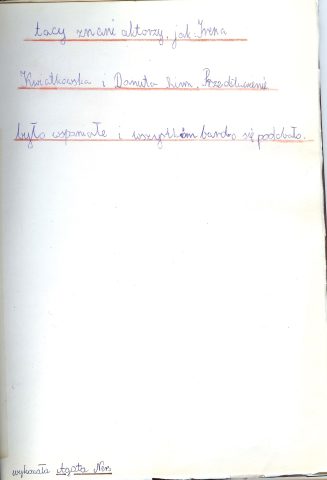 tacy znani aktorzy, jak Irena
Kwiatkowska i Danuta Rinn, Przedstawienie
było wspaniałe i wszystkim bardzo się podobało.
wykonała Agata